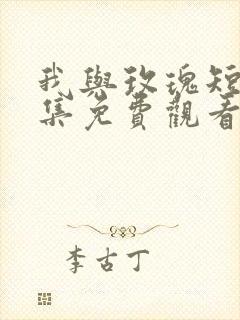 我與玫瑰短
集免費觀看
李古丁